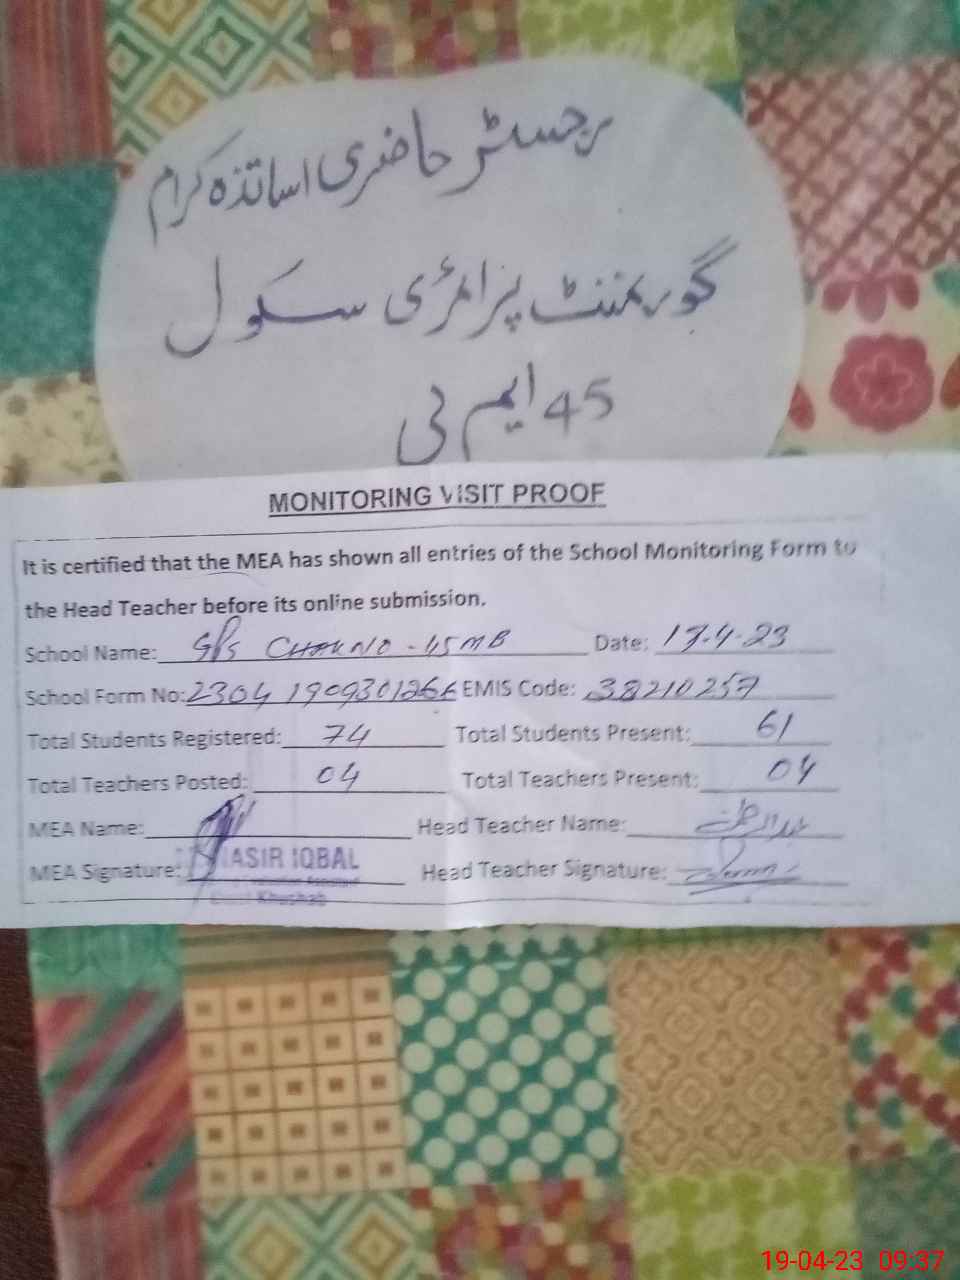 رجسٹر حاضری اساتذہ کرام
گورنمنٹ پرائمری سکول
45 ایم بی
MONITORING VISIT PROOF
It is certified that the MEA has shown all entries of the School Monitoring Form to
the Head Teacher before its online submission.
School Name: GPS CHAK NO - 45 MB Date: 17-4-23
School Form No: EMIS Code: 38210257
Total Students Registered: 74 Total Students Present: 61
Total Teachers Posted: 04 Total Teachers Present: 04
MEA Name: Head Teacher Name:
MEA Signature: NASIR IQBAL Head Teacher Signature:
Khushab
19-04-23 09:37